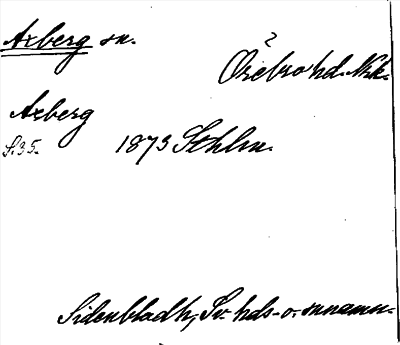 Axberg sn.
Örebro hd. Nrk.
Axberg
S. 35.
1873 Sthlm.
Sidenbladh, Sv. hds- o. snnamn.